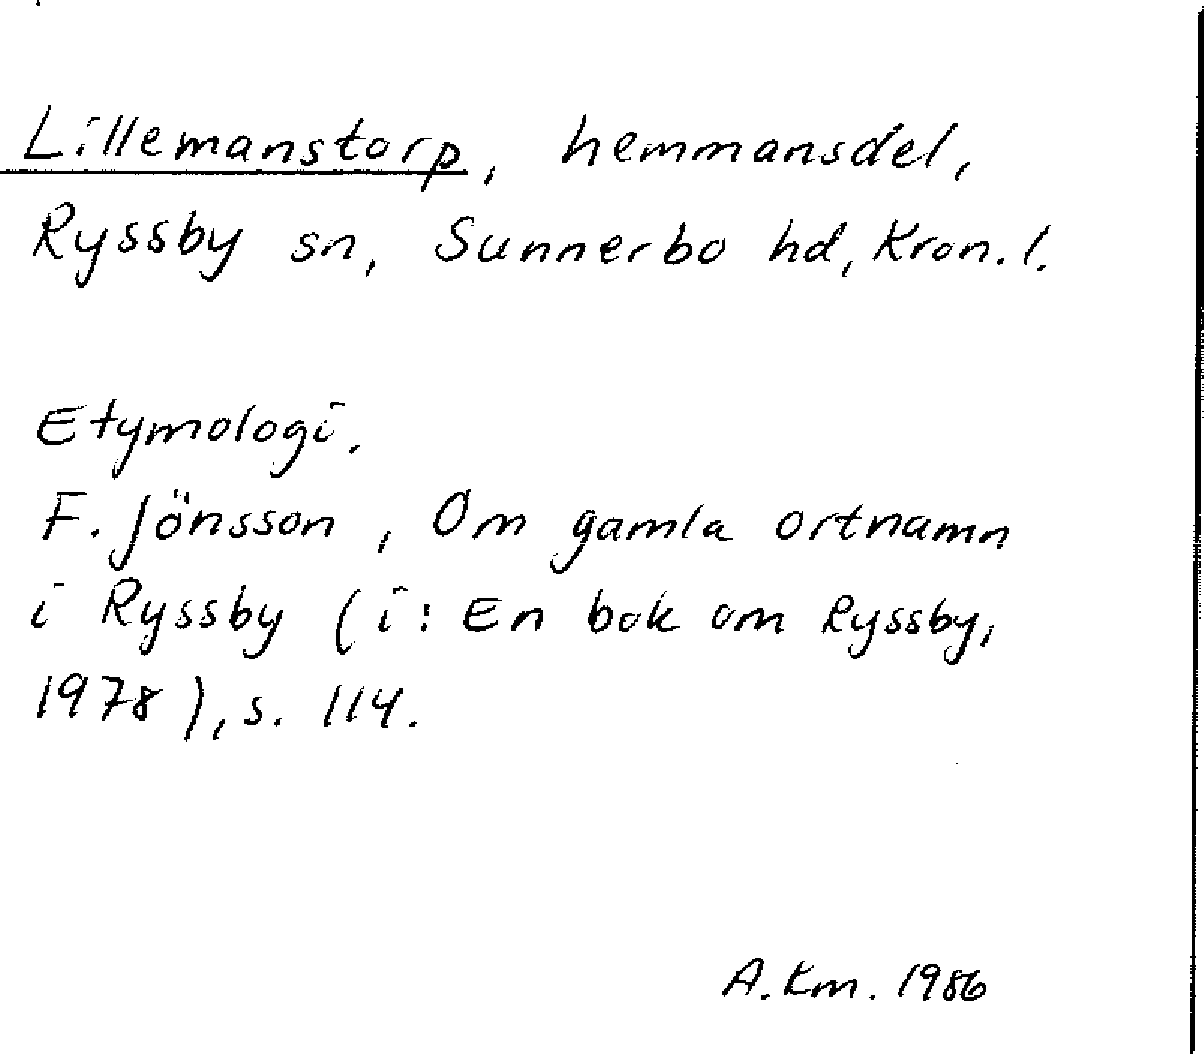 Lillemanstorp, hemmansdel,
Ryssby sn, Sunnerbo hd, Kron. l.
Etymologi.
F. Jönsson, Om gamla ortnamn
i Ryssby (i: En bok om Ryssby,
1978), s. 114.
A. Km. 1986